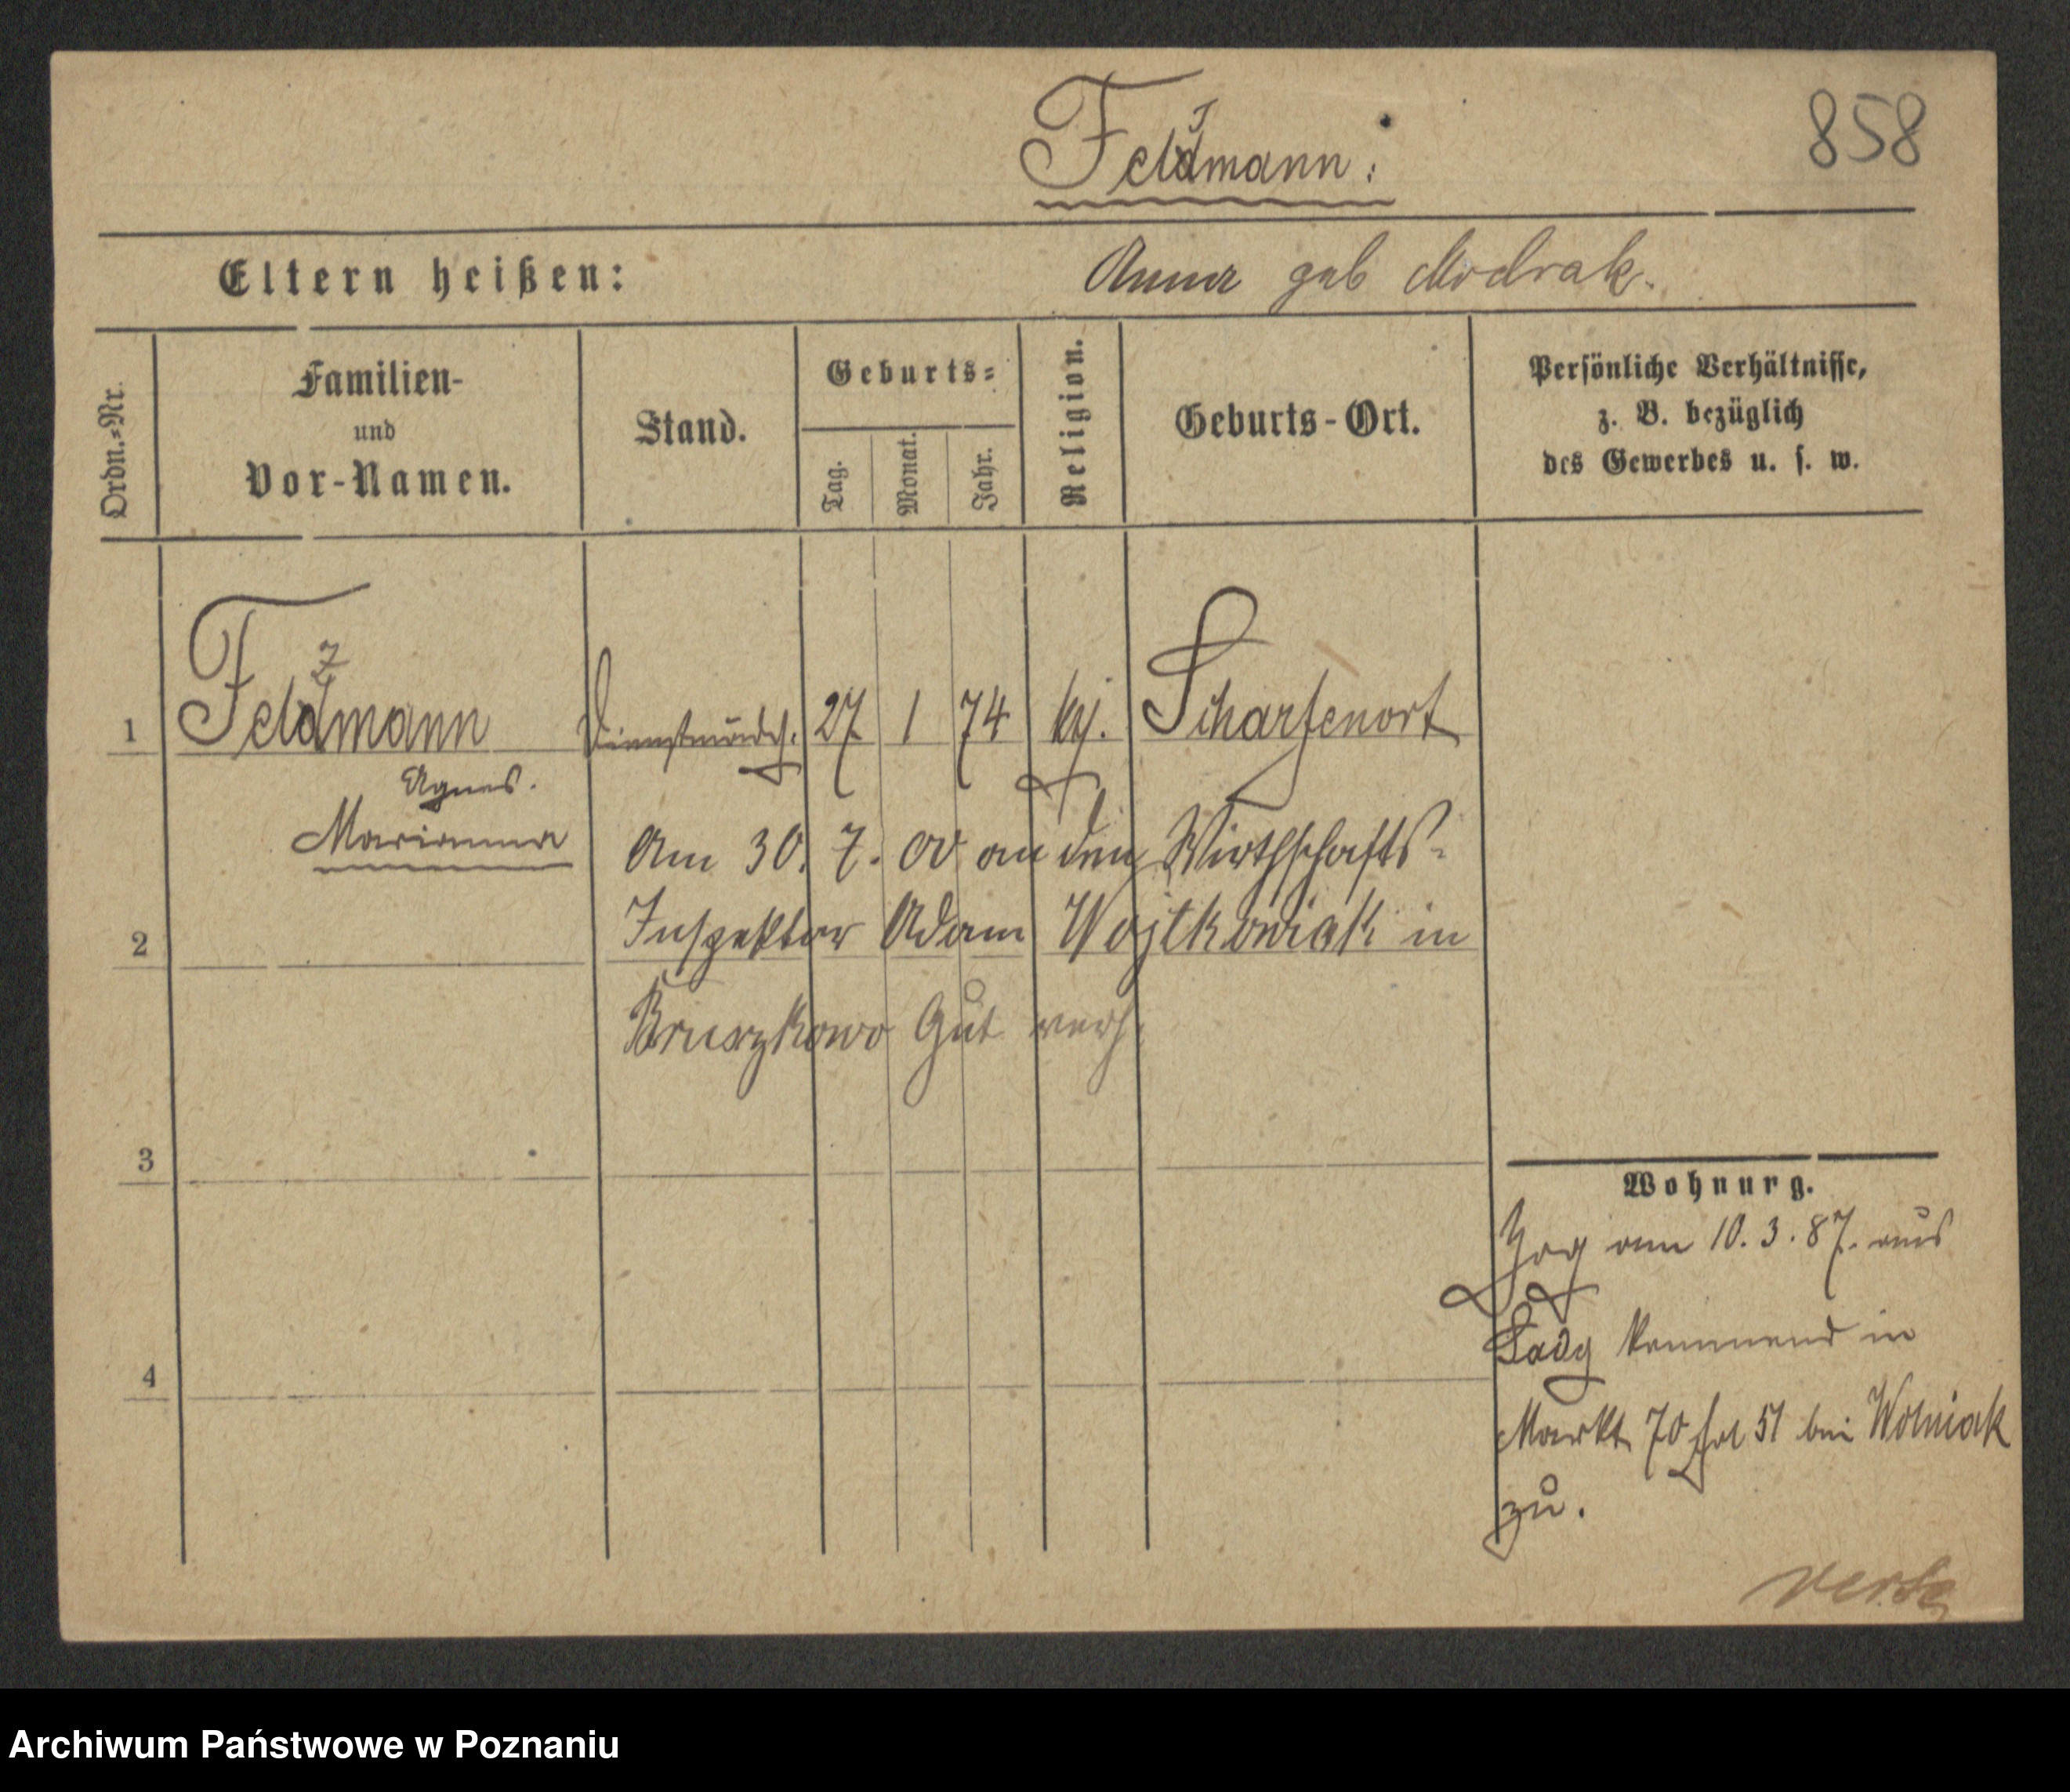 858
Feldmann:
Eltern heißen:
Anna geb Modrak.
Ordn.=Nr.
Familien-
und
Vor-Namen.
Stand.
Geburts=
Tag.
Monat.
Jahr.
Religion.
Geburts-Ort.
Persönliche Verhältnisse,
z. B. bezüglich
des Gewerbes u. s. w.
1 Feldmann Dienstmädch. 27 1 74 kth. Scharfenort
Agnes.
Marianna
Am 30. 7. 00 an den Wirthschafts-
2
Inspektor Adam Wojtkowiak in
Bruszkowo Gut verh.
3
4
Wohnurg.
Zog am 10. 3. 87. aus
kommend in
Markt 70 51 bei Wolniak
zu.
verte
Archiwum Państwowe w Poznaniu